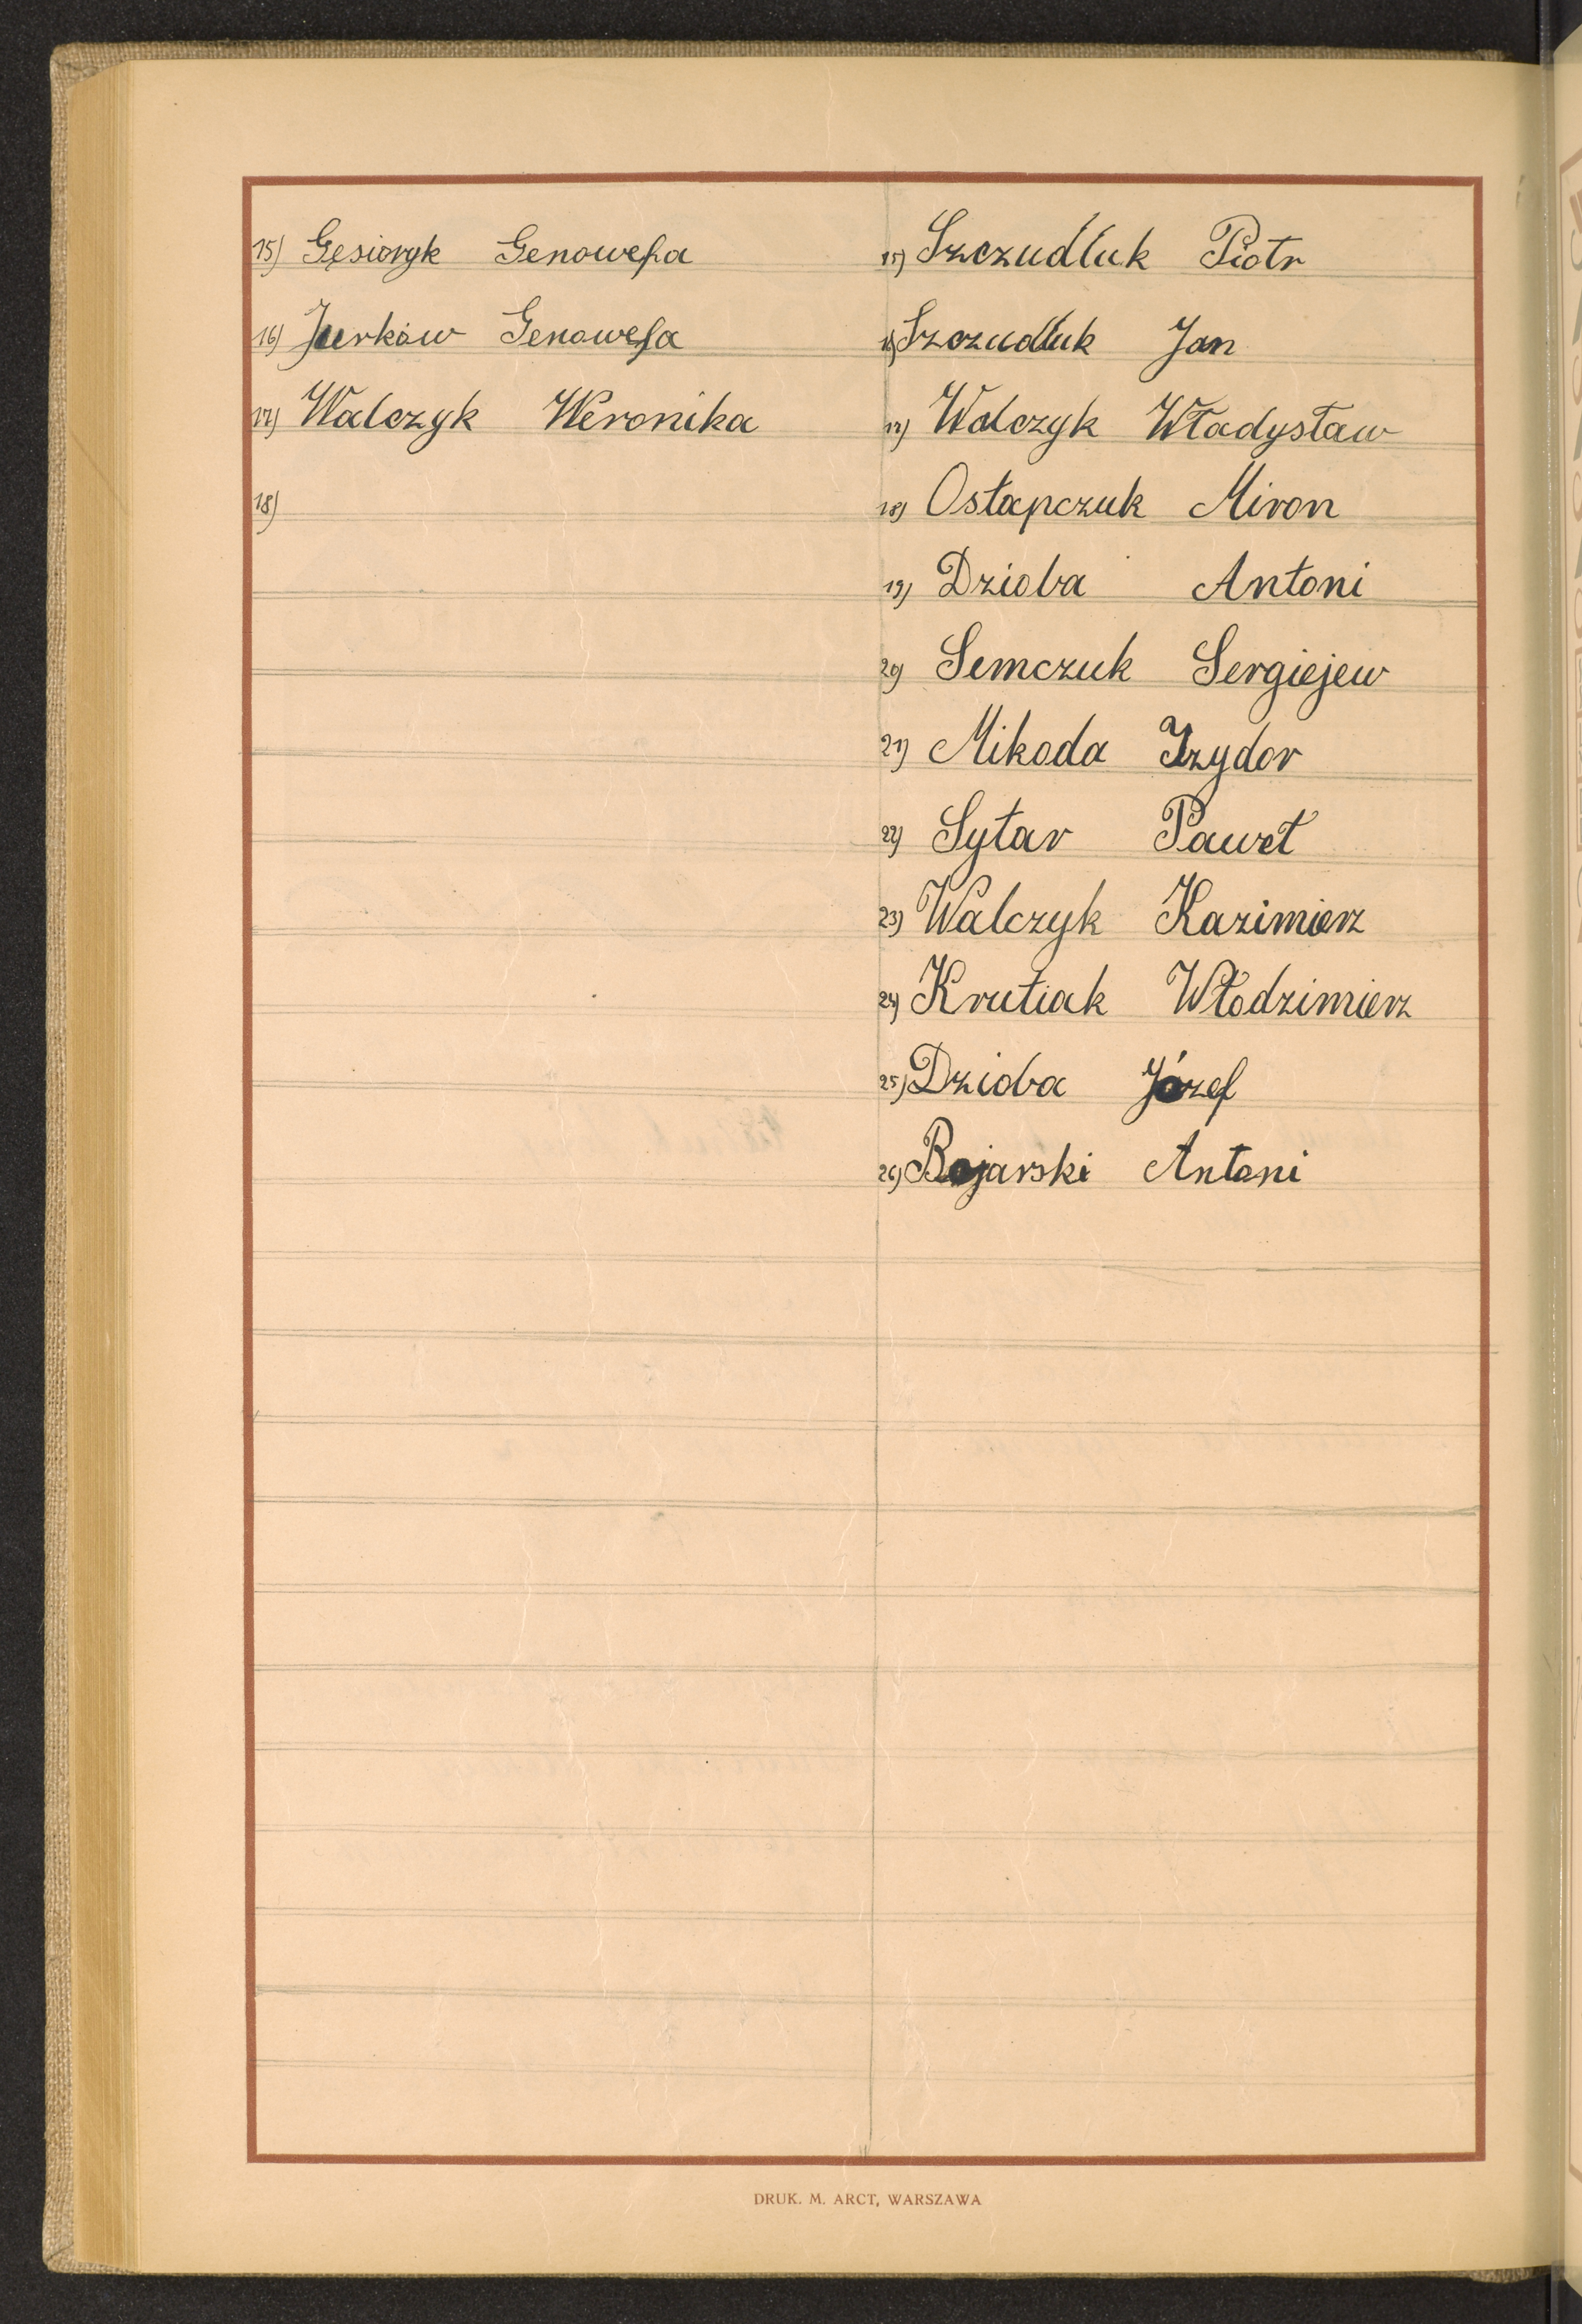 15) Gęsioryk Genowefa
16) Jurków Genowefa
17) Walczyk Weronika
18)
15) Szczudluk Piotr
16) Szczudluk Jan
17) Walczyk Władysław
18) Ostapczuk Miron
19) Dzioba Antoni
20) Semczuk Sergiejew
21) Mikoda Izydor
22) Sytar Paweł
23) Walczyk Kazimierz
24) Krutiak Włodzimierz
25) Dzioba Józef
26) Bojarski Antoni
DRUK. M. ARCT, WARSZAWA